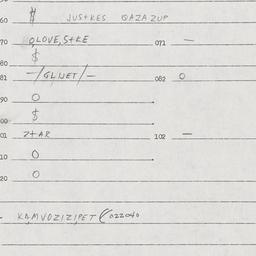 60 $ JUSTKES QAZAZUP
70 0,LOVE,S+KE 071 —
80 $
81 —/GLNET/— 082 0
90 0
00 $
01 Z+AR 102 —
10 0
20 0
KAMVOZIZIPET